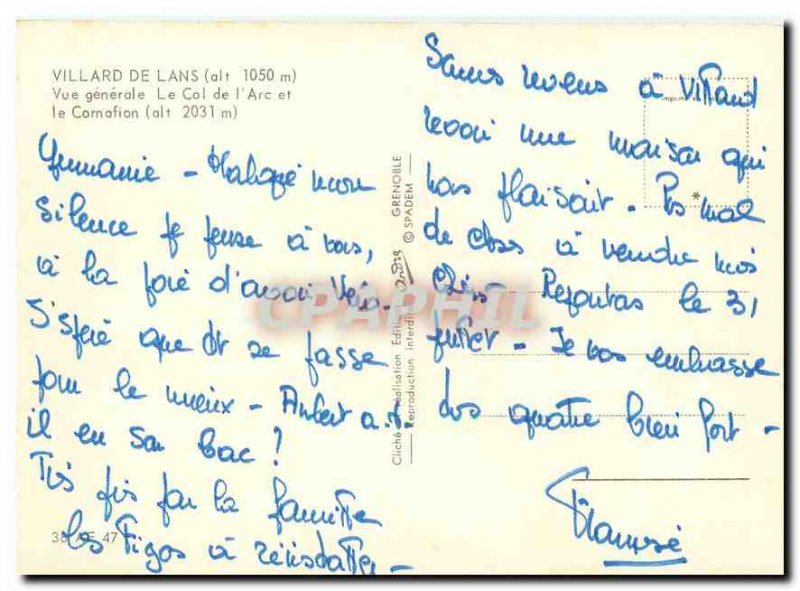 VILLARD DE LANS (alt 1050 m)
Vue générale Le Col de l'Arc et
le Cornafion (alt 2031 m)
Germanie - Malgré mon
silence je pense à vous,
à la joie d'avoir
J'espère que tt se passe
pour le mieux - Aubert a.t
il eu son bac ?
Très pris par la famille
les à
38 47
Cliché Réalisation Edit. André GRENOBLE
Reproduction interdite © SPADEM
CPAPHIL
Sans à Villard
revoir une maison qui
nous plaisait - Pas mal
de choses à vendre mais
chères - Repartons le 31
juillet - Je vous embrasse
tous quatre bien fort -